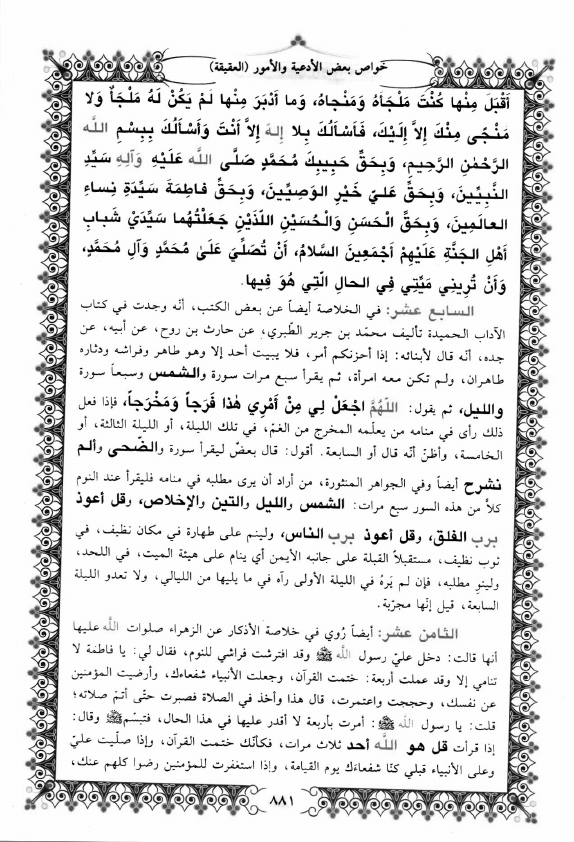 خواص بعض الأدعية والأمور (العقيقة)
أَقْبَلَ مِنْها كُنْتَ مَلْجَأَهُ وَمَنْجاهُ، وَما أَدْبَرَ مِنْها لَمْ يَكُنْ لَهُ مَلْجَأٌ وَلا
مَنْجًى مِنْكَ إِلاَّ إِلَيْكَ، فَأَسْأَلُكَ بِلا إِلهَ إِلاَّ أَنْتَ وَأَسْأَلُكَ بِبِسْمِ اللَّه
الرَّحْمٰنِ الرَّحِيمِ، وَبِحَقِّ حَبِيبِكَ مُحَمَّدٍ صَلَّى اللَّه عَلَيْهِ وَآلِهِ سَيِّدِ
النَّبِيِّينَ، وَبِحَقِّ عَلِيٍّ خَيْرِ الوَصِيِّينَ، وَبِحَقِّ فاطِمَةَ سَيِّدَةِ نِساءِ
العالَمِينَ، وَبِحَقِّ الحَسَنِ وَالْحُسَيْنِ اللَّذَيْنِ جَعَلْتَهُما سَيِّدَيْ شَبابِ
أَهْلِ الجَنَّةِ عَلَيْهِمْ أَجْمَعِينَ السَّلامُ، أَنْ تُصَلِّيَ عَلىٰ مُحَمَّدٍ وَآلِ مُحَمَّدٍ،
وَأَنْ تُرِيَنِي مَيِّتِي فِي الحالِ الَّتِي هُوَ فِيها.
السابع عشر: في الخلاصة أيضاً عن بعض الكتب، أنّه وجدت في كتاب
الآداب الحميدة تأليف محمّد بن جرير الطّبري، عن حارث بن روح، عن أبيه، عن
جده، أنّه قال لأبنائه: إذا أحزنكم أمر، فلا يبيت أحد إلا وهو طاهر وفراشه ودثاره
طاهران، ولم تكن معه امرأة، ثم يقرأ سبع مرات سورة والشمس وسبعاً سورة
والليل، ثم يقول: اللَّهُمَّ اجْعَلْ لِي مِنْ أَمْرِي هٰذا فَرَجاً وَمَخْرَجاً، فإذا فعل
ذلك رأى في منامه من يعلّمه المخرج من الغمّ، في تلك الليلة، أو الليلة الثالثة، أو
الخامسة، وأظنّ أنّه قال أو السابعة. أقول: قال بعضٌ ليقرأ سورة والضّحى وألم
نشرح أيضاً وفي الجواهر المنثورة، من أراد أن يرى مطلبه في منامه فليقرأ عند النوم
كلاً من هذه السور سبع مرات: الشمس والليل والتين والإخلاص، وقل أعوذ
برب الفلق، وقل أعوذ برب الناس، ولينم على طهارة في مكان نظيف، في
ثوب نظيف، مستقبلاً القبلة على جانبه الأيمن أي ينام على هيئة الميت، في اللحد،
ولينوِ مطلبه، فإن لم يَرهُ في الليلة الأولى رآه في ما يليها من الليالي، ولا تعدو الليلة
السابعة، قيل إنّها مجرّبة.
الثامن عشر: أيضاً رُوي في خلاصة الأذكار عن الزهراء صلوات اللَّه عليها
أنها قالت: دخل عليّ رسول اللَّه ﷺ وقد افترشت فراشي للنوم، فقال لي: يا فاطمة لا
تنامي إلا وقد عملت أربعة: ختمت القرآن، وجعلت الأنبياء شفعاءك، وأرضيت المؤمنين
عن نفسك، وحججت واعتمرت، قال هذا وأخذ في الصلاة فصبرت حتّى أتمّ صلاته؛
قلت: يا رسول اللَّه ﷺ: أمرت بأربعة لا أقدر عليها في هذا الحال، فتبسّم ﷺ وقال:
إذا قرأت قل هو اللَّه أحد ثلاث مرات، فكأنّك ختمت القرآن، وإذا صلّيت عليّ
وعلى الأنبياء قبلي كنّا شفعاءك يوم القيامة، وإذا استغفرت للمؤمنين رضوا كلهم عنك،
٨٨١